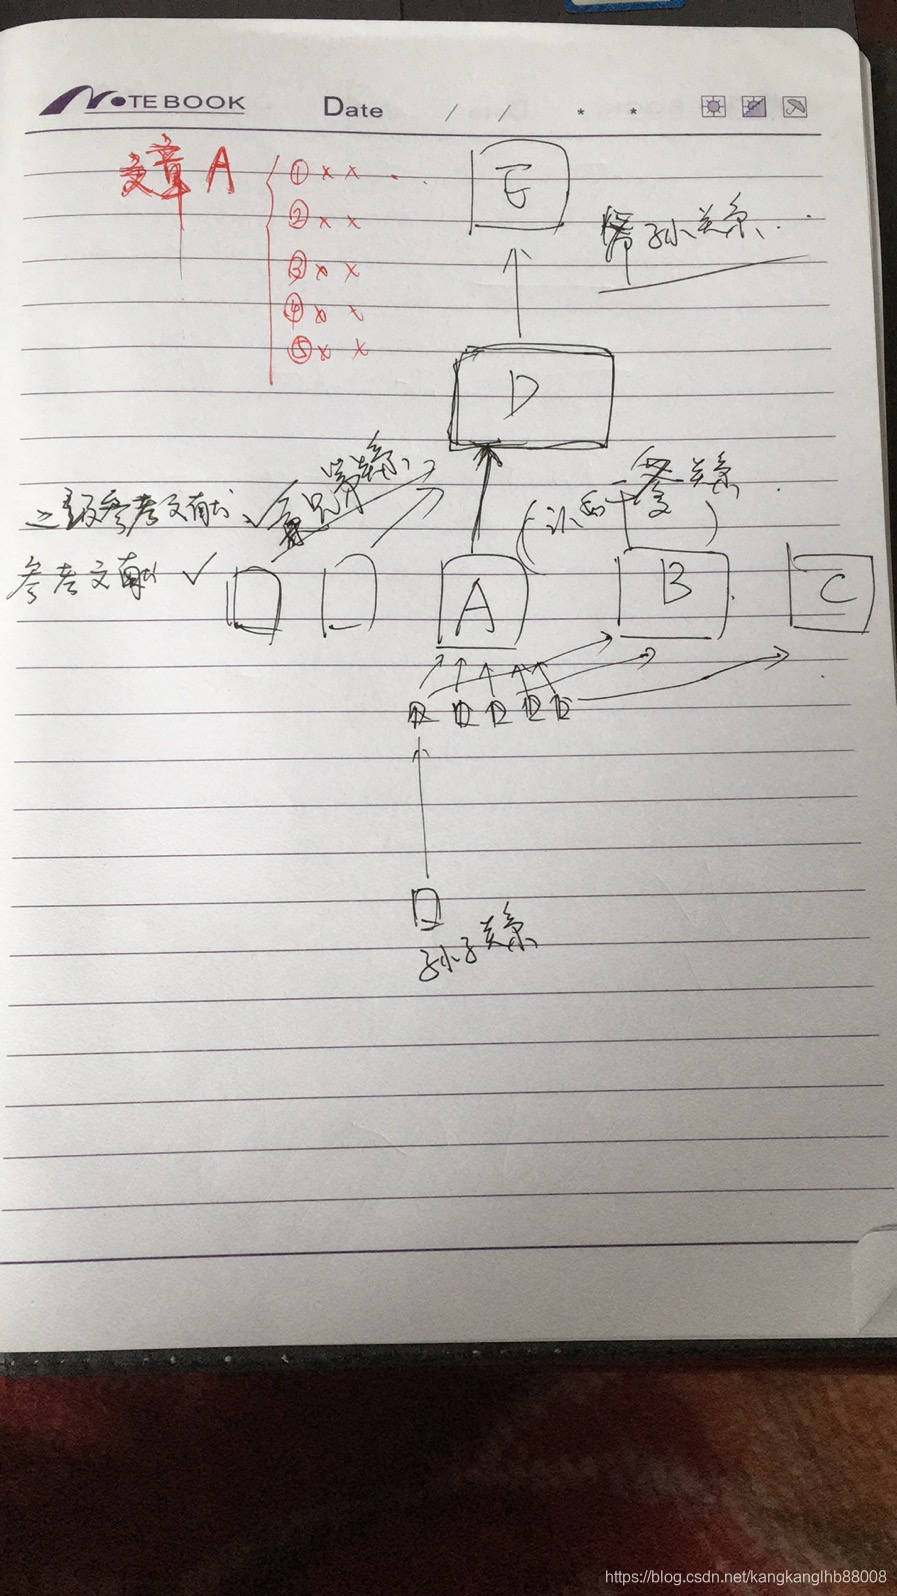 NOTEBOOK Date / / * *
文章 A
① x x
② x x
③ x x
④ x x
⑤ x x
E
孙关系
D
亲兄弟关系
二级参考文献 ✓
参考文献 ✓
关系
A
B
C
孙子关系
https://blog.csdn.net/kangkanglhb88008